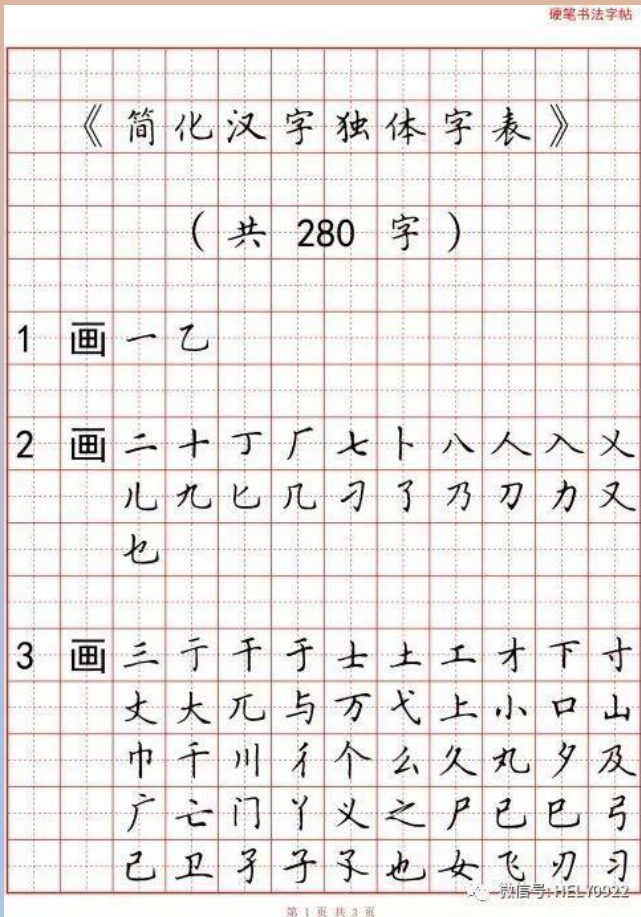 硬笔书法字帖
《简化汉字独体字表》
(共 280 字)
1 画 一 乙
2 画 二 十 丁 厂 七 卜 八 人 入 乂
儿 九 匕 几 刁 了 乃 刀 力 又
乜
3 画 三 亍 干 于 士 土 工 才 下 寸
丈 大 兀 与 万 弋 上 小 口 山
巾 千 川 彳 个 么 久 丸 夕 及
广 亡 门 丫 义 之 尸 已 巳 弓
己 卫 孑 子 孓 也 女 飞 刃 习
微信号: HELY0922
第 1 页 共 3 页